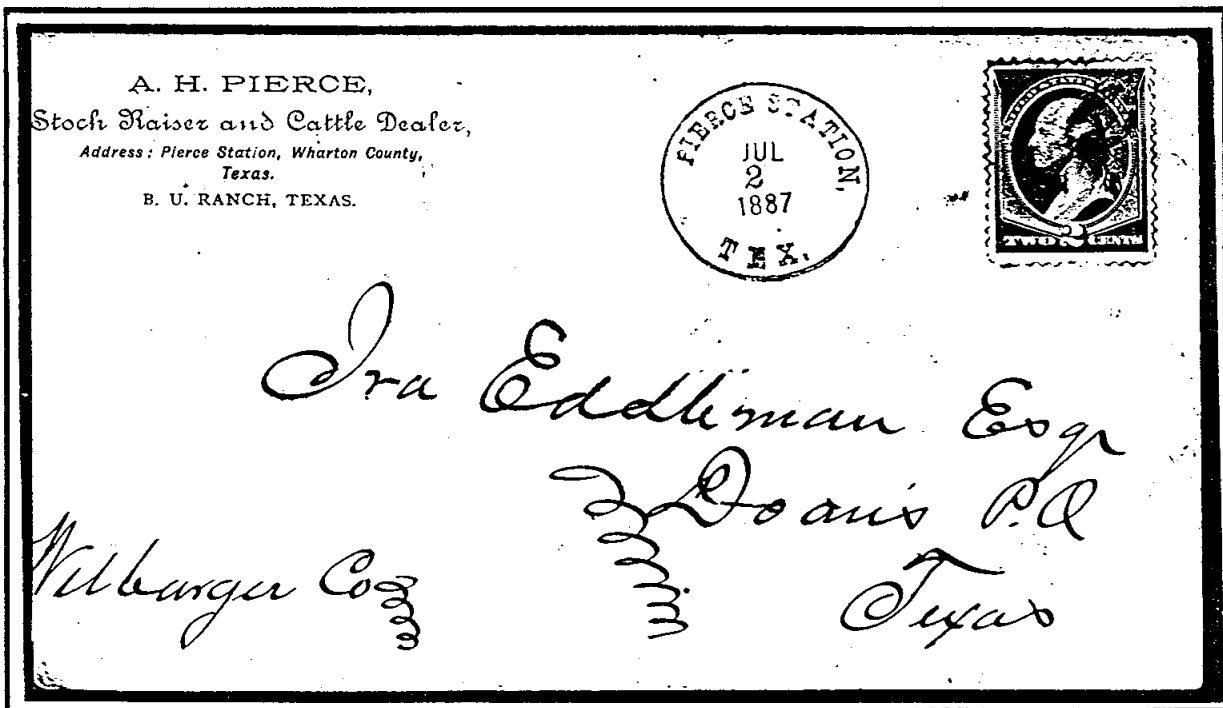 A. H. PIERCE,
Stock Raiser and Cattle Dealer,
Address: Pierce Station, Wharton County,
Texas.
B. U. RANCH, TEXAS.
PIERCE STATION,
JUL
2
1887
TEX.
UNITED STATES
TWO 2 CENTS
Ira Eddleman Esqr
Doan's P.O
Wilbarger Co
Texas